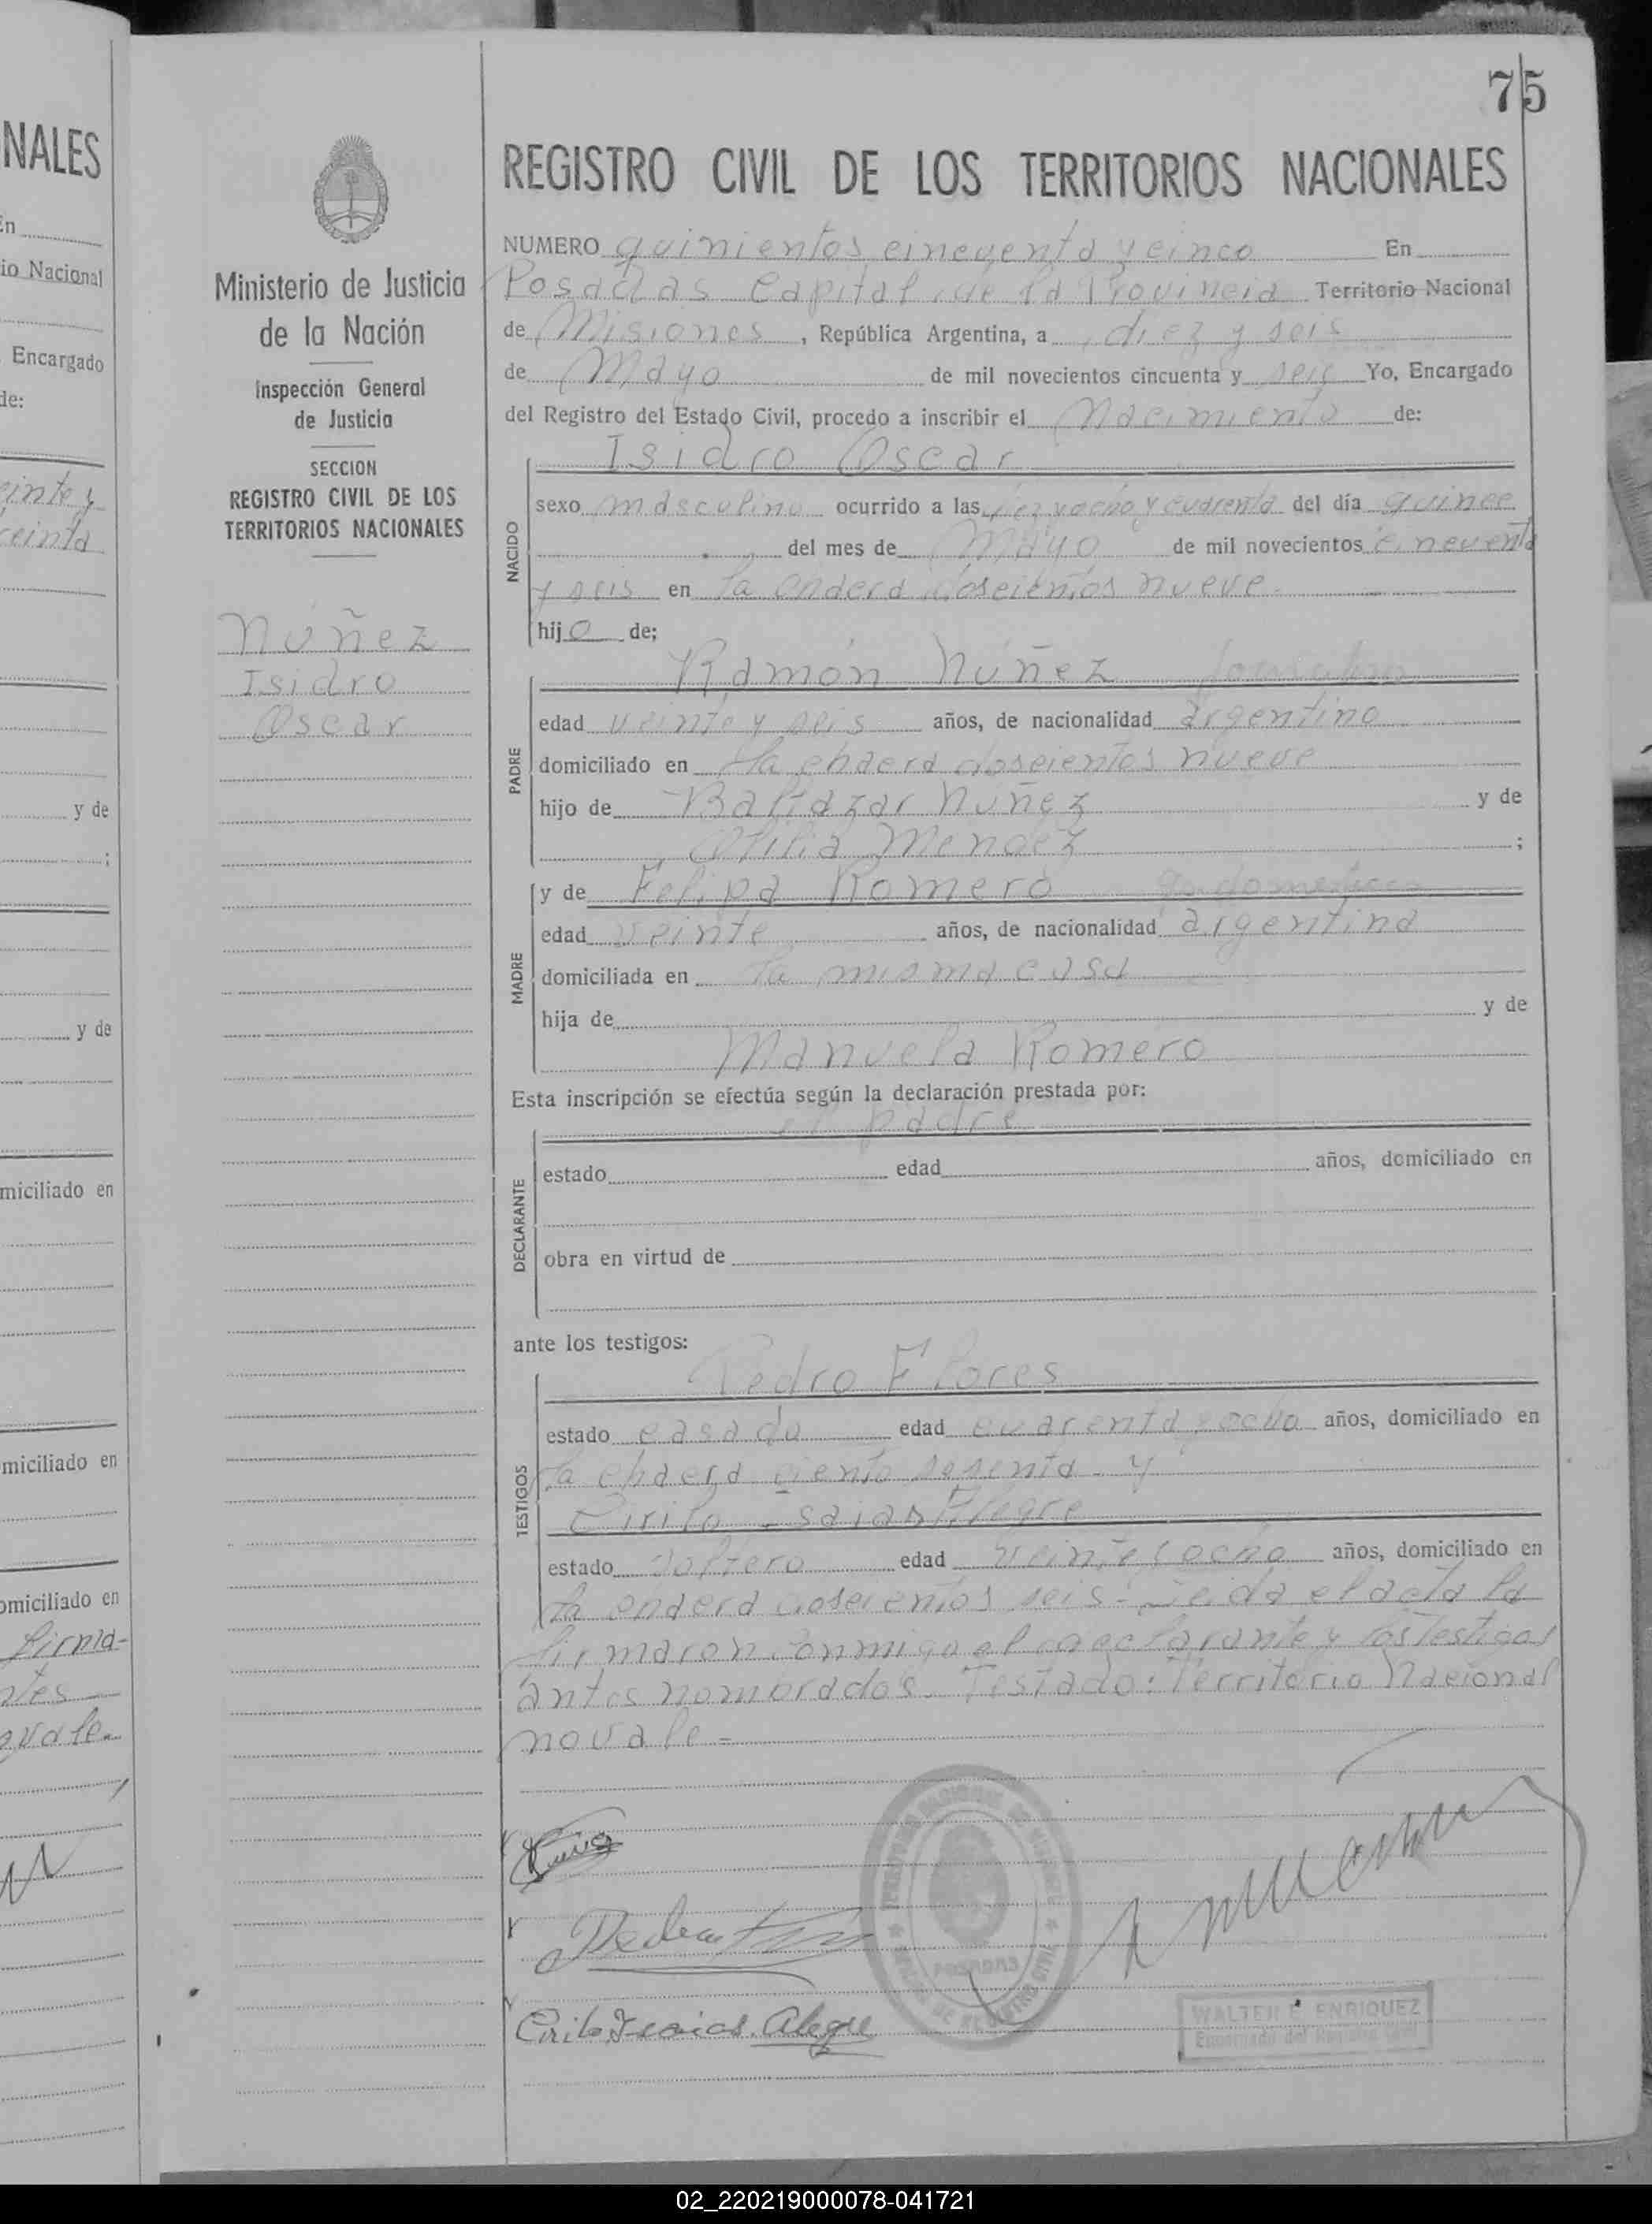 75
NALES
En
io Nacional
Encargado
de:
einte y
reinta
y de
;
y de
miciliado en
miciliado en
omiciliado en
firma-
ntes
ovale.
Ministerio de Justicia
de la Nación
Inspección General
de Justicia
SECCION
REGISTRO CIVIL DE LOS
TERRITORIOS NACIONALES
Núñez
Isidro
Oscar
REGISTRO CIVIL DE LOS TERRITORIOS NACIONALES
NUMERO quinientos cincuenta y cinco En
Posadas Capital de la Provincia Territorio Nacional
de Misiones, República Argentina, a diez y seis
de Mayo de mil novecientos cincuenta y seis Yo, Encargado
del Registro del Estado Civil, procedo a inscribir el Nacimiento de:
Isidro Oscar
NACIDO
sexo masculino ocurrido a las diez y ocho y cuarenta del día quince
del mes de Mayo de mil novecientos cincuenta
y seis en la chacra doscientos nueve
hijo de;
Ramón Núñez jornalero
PADRE
edad veinte y seis años, de nacionalidad argentino
domiciliado en la chacra doscientos nueve
hijo de Baltazar Núñez y de
Otilia Mendez ;
y de Felipa Romero
MADRE
edad veinte años, de nacionalidad argentina
domiciliada en la misma casa
hija de y de
Manuela Romero
Esta inscripción se efectúa según la declaración prestada por:
el padre
DECLARANTE
estado edad años, domiciliado en
obra en virtud de
ante los testigos:
Pedro Flores
TESTIGOS
estado casado edad cuarenta y ocho años, domiciliado en
la chacra ciento sesenta y
Cirilo Isaias Alegre
estado soltero edad veinte y ocho años, domiciliado en
la chacra doscientos seis - Leida el acta la
firmaron conmigo el declarante y los testigos
antes nombrados. Testado: Territorio Nacional
no vale -
Cirilo Isaias Alegre
POSADAS
WALTER ENRIQUEZ
Encargado del Registro Civil
02_220219000078-041721